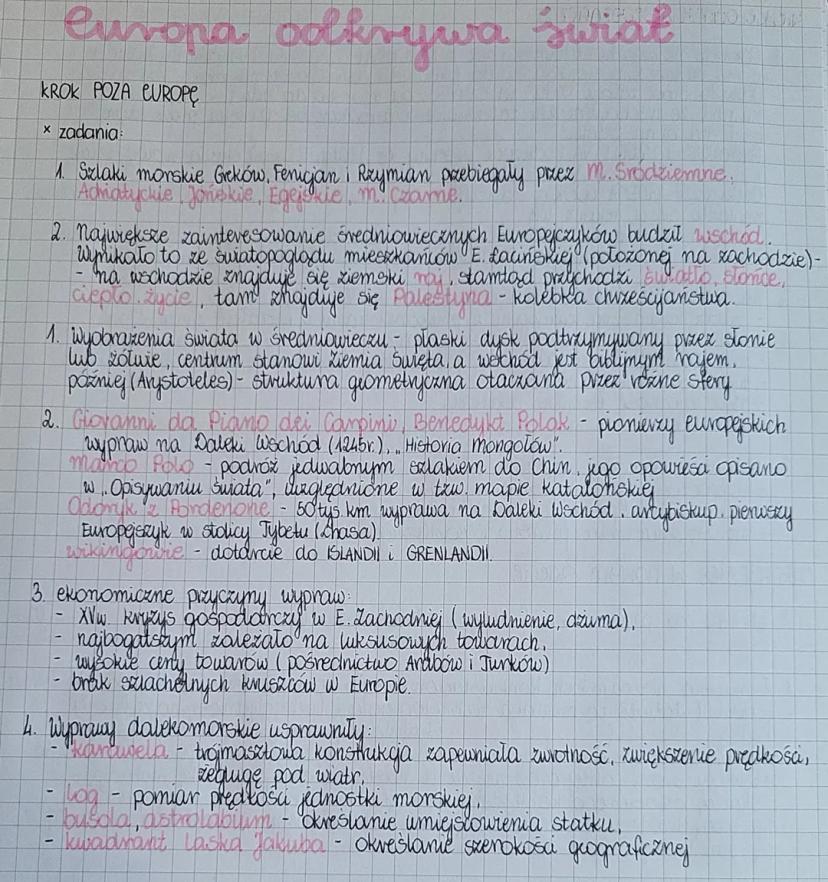 Europa odkrywa świat
KROK POZA EUROPĘ
* zadania:
1. Szlaki morskie Greków, Fenicjan i Rzymian przebiegały przez M. Śródziemne,
Adriatyckie, Jońskie, Egejskie, M. Czarne.
2. Największe zainteresowanie średniowiecznych Europejczyków budził wschód.
Wynikało to ze światopoglądu mieszkańców E. Łacińskiej (położonej na zachodzie)-
- na wschodzie znajduje się ziemski raj, stamtąd przychodzi światło, słońce,
ciepło, życie, tam znajduje się Palestyna - kolebka chrześcijaństwa.
1. Wyobrażenia świata w średniowieczu - płaski dysk podtrzymywany przez słonie
lub żółwie, centrum stanowi Ziemia Święta, a wschód jest biblijnym rajem,
później (Arystoteles) - struktura geometryczna otaczana przez różne sfery
2. Giovanni da Piano dei Carpini, Benedykt Polak - pionierzy europejskich
wypraw na Daleki Wschód (1245r.), „Historia Mongołów".
Marco Polo - podróż jedwabnym szlakiem do Chin, jego opowieści opisano
w „Opisywaniu świata", uwzględnione w tzw. mapie katalońskiej
Odoryk z Pordenone - 50 tys. km wyprawa na Daleki Wschód, arcybiskup, pierwszy
Europejczyk w stolicy Tybetu (Lhasa)
wikingowie - dotarcie do ISLANDII i GRENLANDII.
3. ekonomiczne przyczyny wypraw:
- XVw. kryzys gospodarczy w E. Zachodniej (wyludnienie, dżuma),
- najbogatszym zależało na luksusowych towarach,
- wysokie ceny towarów (pośrednictwo Arabów i Turków)
- brak szlachetnych kruszców w Europie.
4. Wyprawy dalekomorskie usprawniły:
- karawela - trójmasztowa konstrukcja zapewniała zwrotność, zwiększenie prędkości,
żeglugę pod wiatr,
- log - pomiar prędkości jednostki morskiej,
- busola, astrolabium - określanie umiejscowienia statku,
- kwadrant Laska Jakuba - określanie szerokości geograficznej